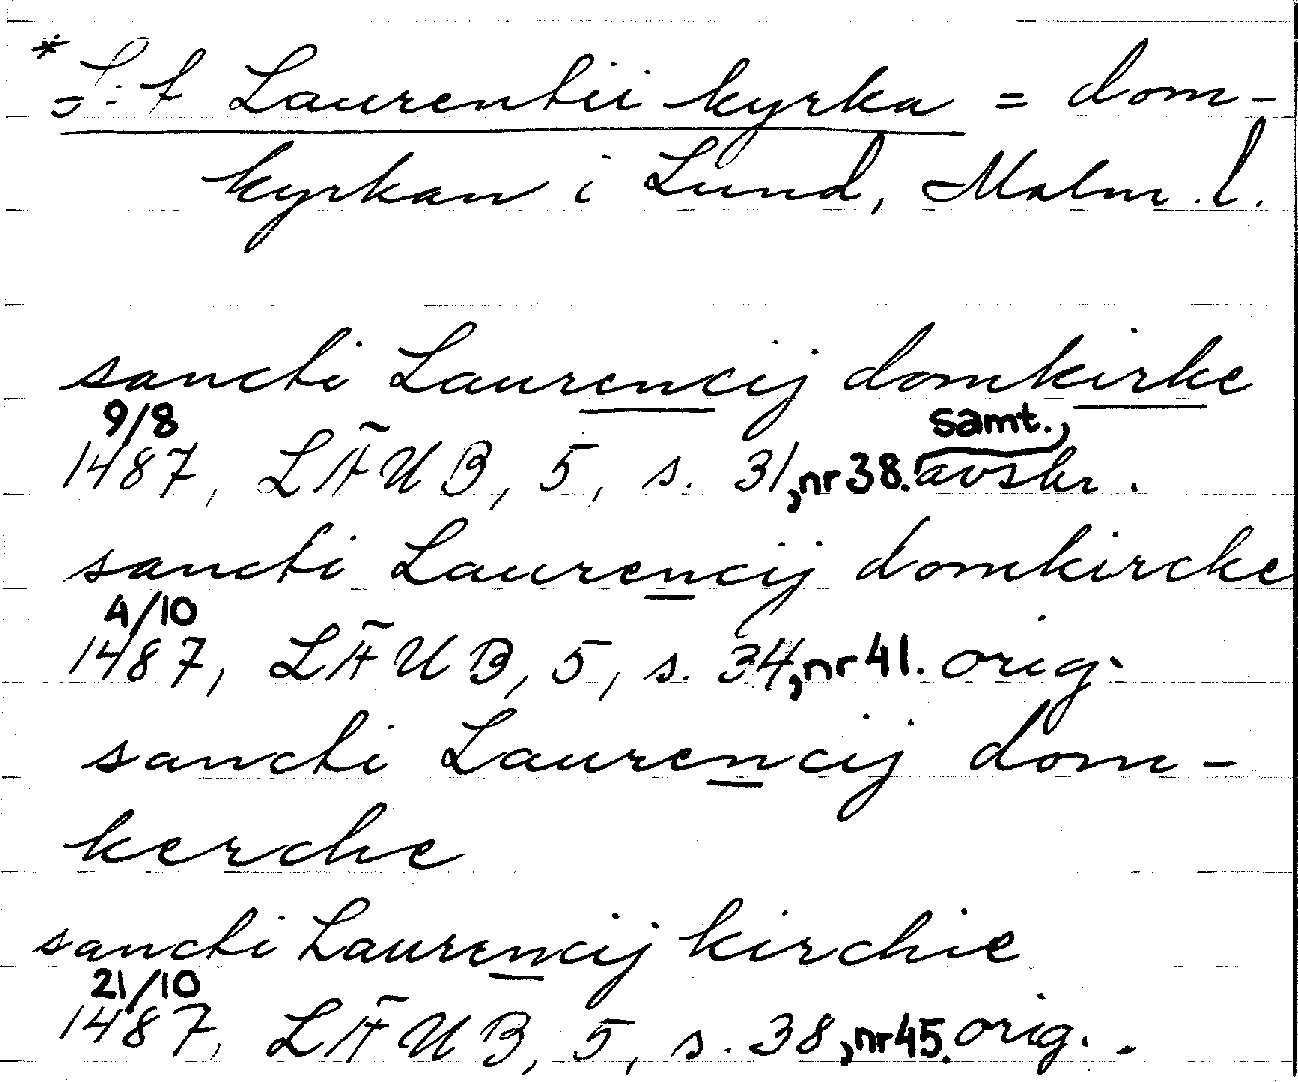 * S:t Laurentii kyrka = dom-
kyrkan i Lund, Malm. l.
sancti Laurencij domkirke
9/8 samt.,
1487, LÄUB, 5, s. 31, nr 38. avskr.
sancti Laurencij domkircke
4/10
1487, LÄUB, 5, s. 34, nr 41. orig.
sancti Laurencij dom-
kerche
sancti Laurencij kirchie
21/10
1487, LÄUB, 5, s. 38, nr 45. orig.